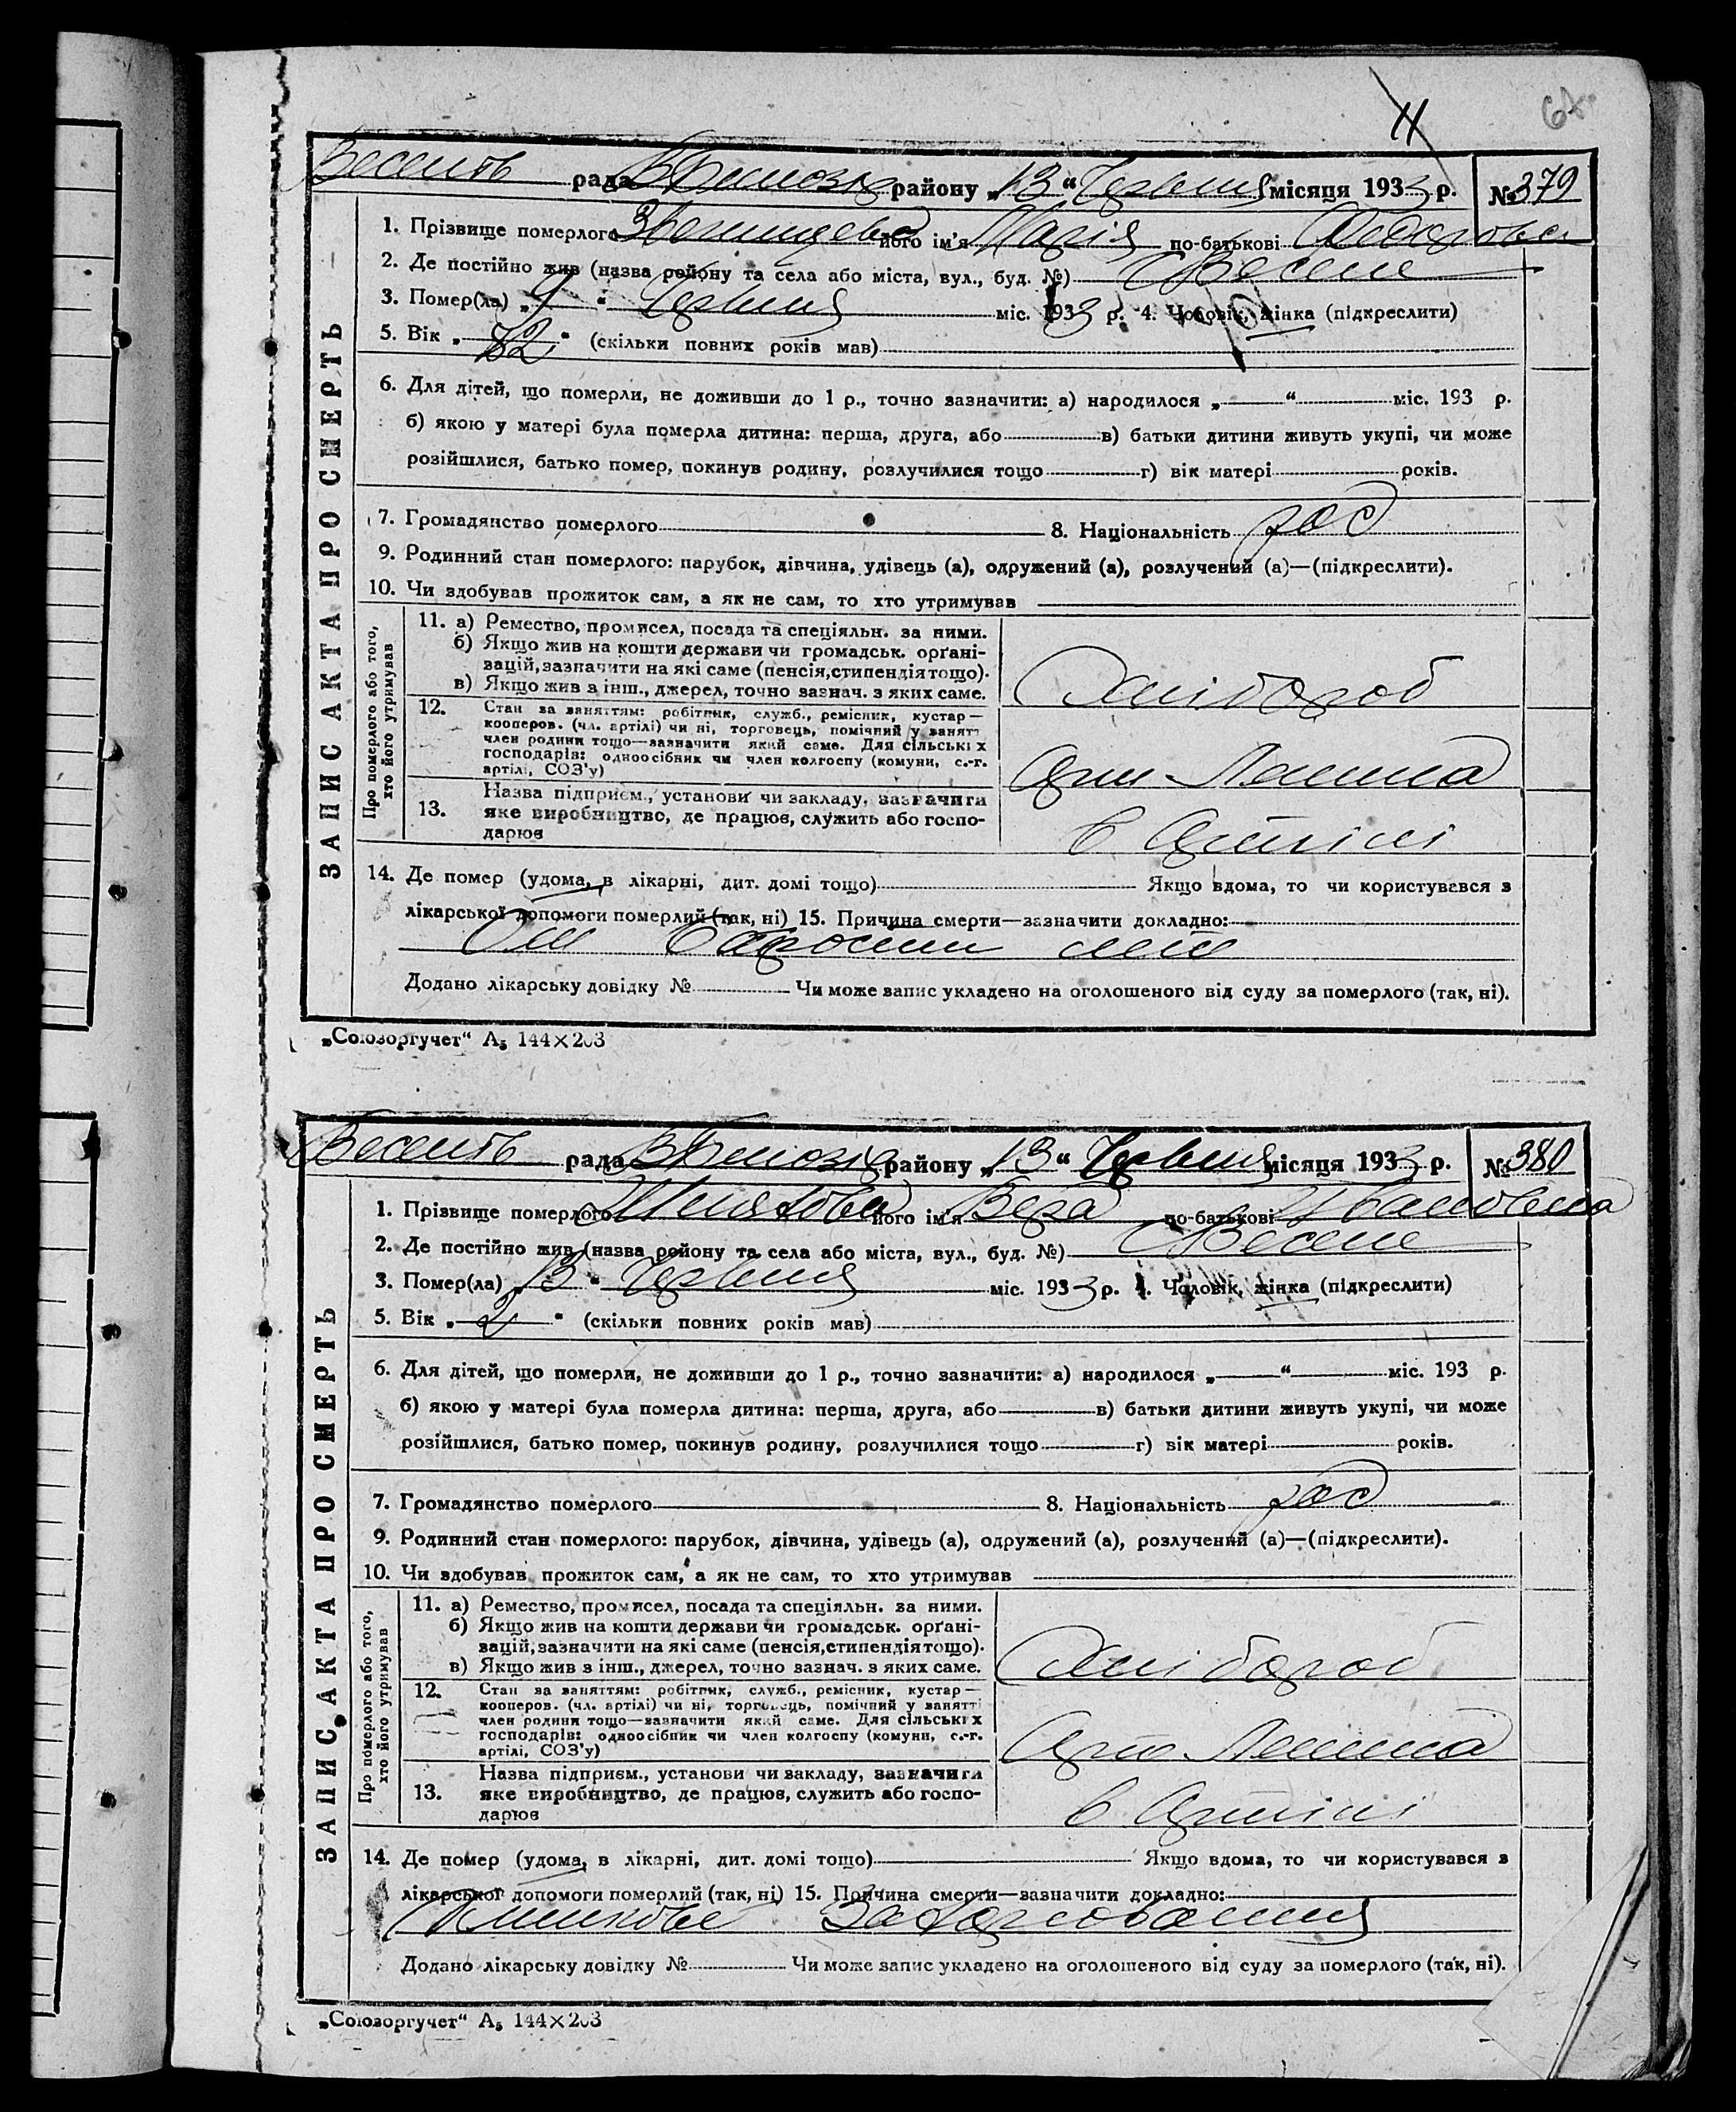 11 67
Веселів рада В Білозір району „13“ Червня місяця 1933 р. № 379
1. Прізвище померлого його ім'я Марія по-батькові Федорова
2. Де постійно жив (назва району та села або міста, вул., буд. №) с Веселе
3. Помер(ла) „9“ Червня міс. 1933 р. 4. Чоловік, жінка (підкреслити)
5. Вік „72“ (скільки повних років мав)
6. Для дітей, що померли, не доживши до 1 р., точно зазначити: а) народилося „ “ міс. 193 р.
б) якою у матері була померла дитина: перша, друга, або в) батьки дитини живуть укупі, чи може
розійшлися, батько помер, покинув родину, розлучилися тощо г) вік матері років.
7. Громадянство померлого 8. Національність рос
9. Родинний стан померлого: парубок, дівчина, удівець (а), одружений (а), розлучений (а)—(підкреслити).
10. Чи здобував прожиток сам, а як не сам, то хто утримував
ЗАПИС АКТА ПРО СМЕРТЬ
Про померлого або того,
хто його утримував
11. а) Ремество, промисел, посада та спеціяльн. за ними.
б) Якщо жив на кошти держави чи громадськ. орґані-
зацій, зазначити на які саме (пенсія, стипендія тощо).
в) Якщо жив з інш., джерел, точно зазнач. з яких саме. Хлібороб
12. Стан за заняттям: робітник, служб., ремісник, кустар—
кооперов. (чл. артілі) чи ні, торговець, помічний у занятті
член родини тощо—зазначити який саме. Для сільських
господарів: одноосібник чи член колгоспу (комуни, с.-г.
артілі, СОЗ'у) Арт Леніна
13. Назва підприєм., установи чи закладу, зазначити
яке виробництво, де працює, служить або госпо-
дарює в Артілі
14. Де помер (удома, в лікарні, дит. домі тощо) Якщо вдома, то чи користувався з
лікарської допомоги померлий (так, ні) 15. Причина смерти—зазначити докладно:
От старости лет
Додано лікарську довідку № Чи може запис укладено на оголошеного від суду за померлого (так, ні).
„Союзоргучет“ А₅ 144×203
Веселів рада В Білозір району „13“ Червня місяця 1933 р. № 380
1. Прізвище померлого його ім'я Вера по-батькові Ивановна
2. Де постійно жив (назва району та села або міста, вул., буд. №) с Веселе
3. Помер(ла) „13“ Червня міс. 1933 р. 4. Чоловік, жінка (підкреслити)
5. Вік „2“ (скільки повних років мав)
6. Для дітей, що померли, не доживши до 1 р., точно зазначити: а) народилося „ “ міс. 193 р.
б) якою у матері була померла дитина: перша, друга, або в) батьки дитини живуть укупі, чи може
розійшлися, батько помер, покинув родину, розлучилися тощо г) вік матері років.
7. Громадянство померлого 8. Національність рос
9. Родинний стан померлого: парубок, дівчина, удівець (а), одружений (а), розлучений (а)—(підкреслити).
10. Чи здобував прожиток сам, а як не сам, то хто утримував
ЗАПИС АКТА ПРО СМЕРТЬ
Про померлого або того,
хто його утримував
11. а) Ремество, промисел, посада та спеціяльн. за ними.
б) Якщо жив на кошти держави чи громадськ. орґані-
зацій, зазначити на які саме (пенсія, стипендія тощо).
в) Якщо жив з інш., джерел, точно зазнач. з яких саме. Хлібороб
12. Стан за заняттям: робітник, служб., ремісник, кустар—
кооперов. (чл. артілі) чи ні, торговець, помічний у занятті
член родини тощо—зазначити який саме. Для сільських
господарів: одноосібник чи член колгоспу (комуни, с.-г.
артілі, СОЗ'у) Арт Леніна
13. Назва підприєм., установи чи закладу, зазначити
яке виробництво, де працює, служить або госпо-
дарює в Артілі
14. Де помер (удома, в лікарні, дит. домі тощо) Якщо вдома, то чи користувався з
лікарської допомоги померлий (так, ні) 15. Причина смерти—зазначити докладно:
Кишкове Захорювання
Додано лікарську довідку № Чи може запис укладено на оголошеного від суду за померлого (так, ні).
„Союзоргучет“ А₅ 144×203